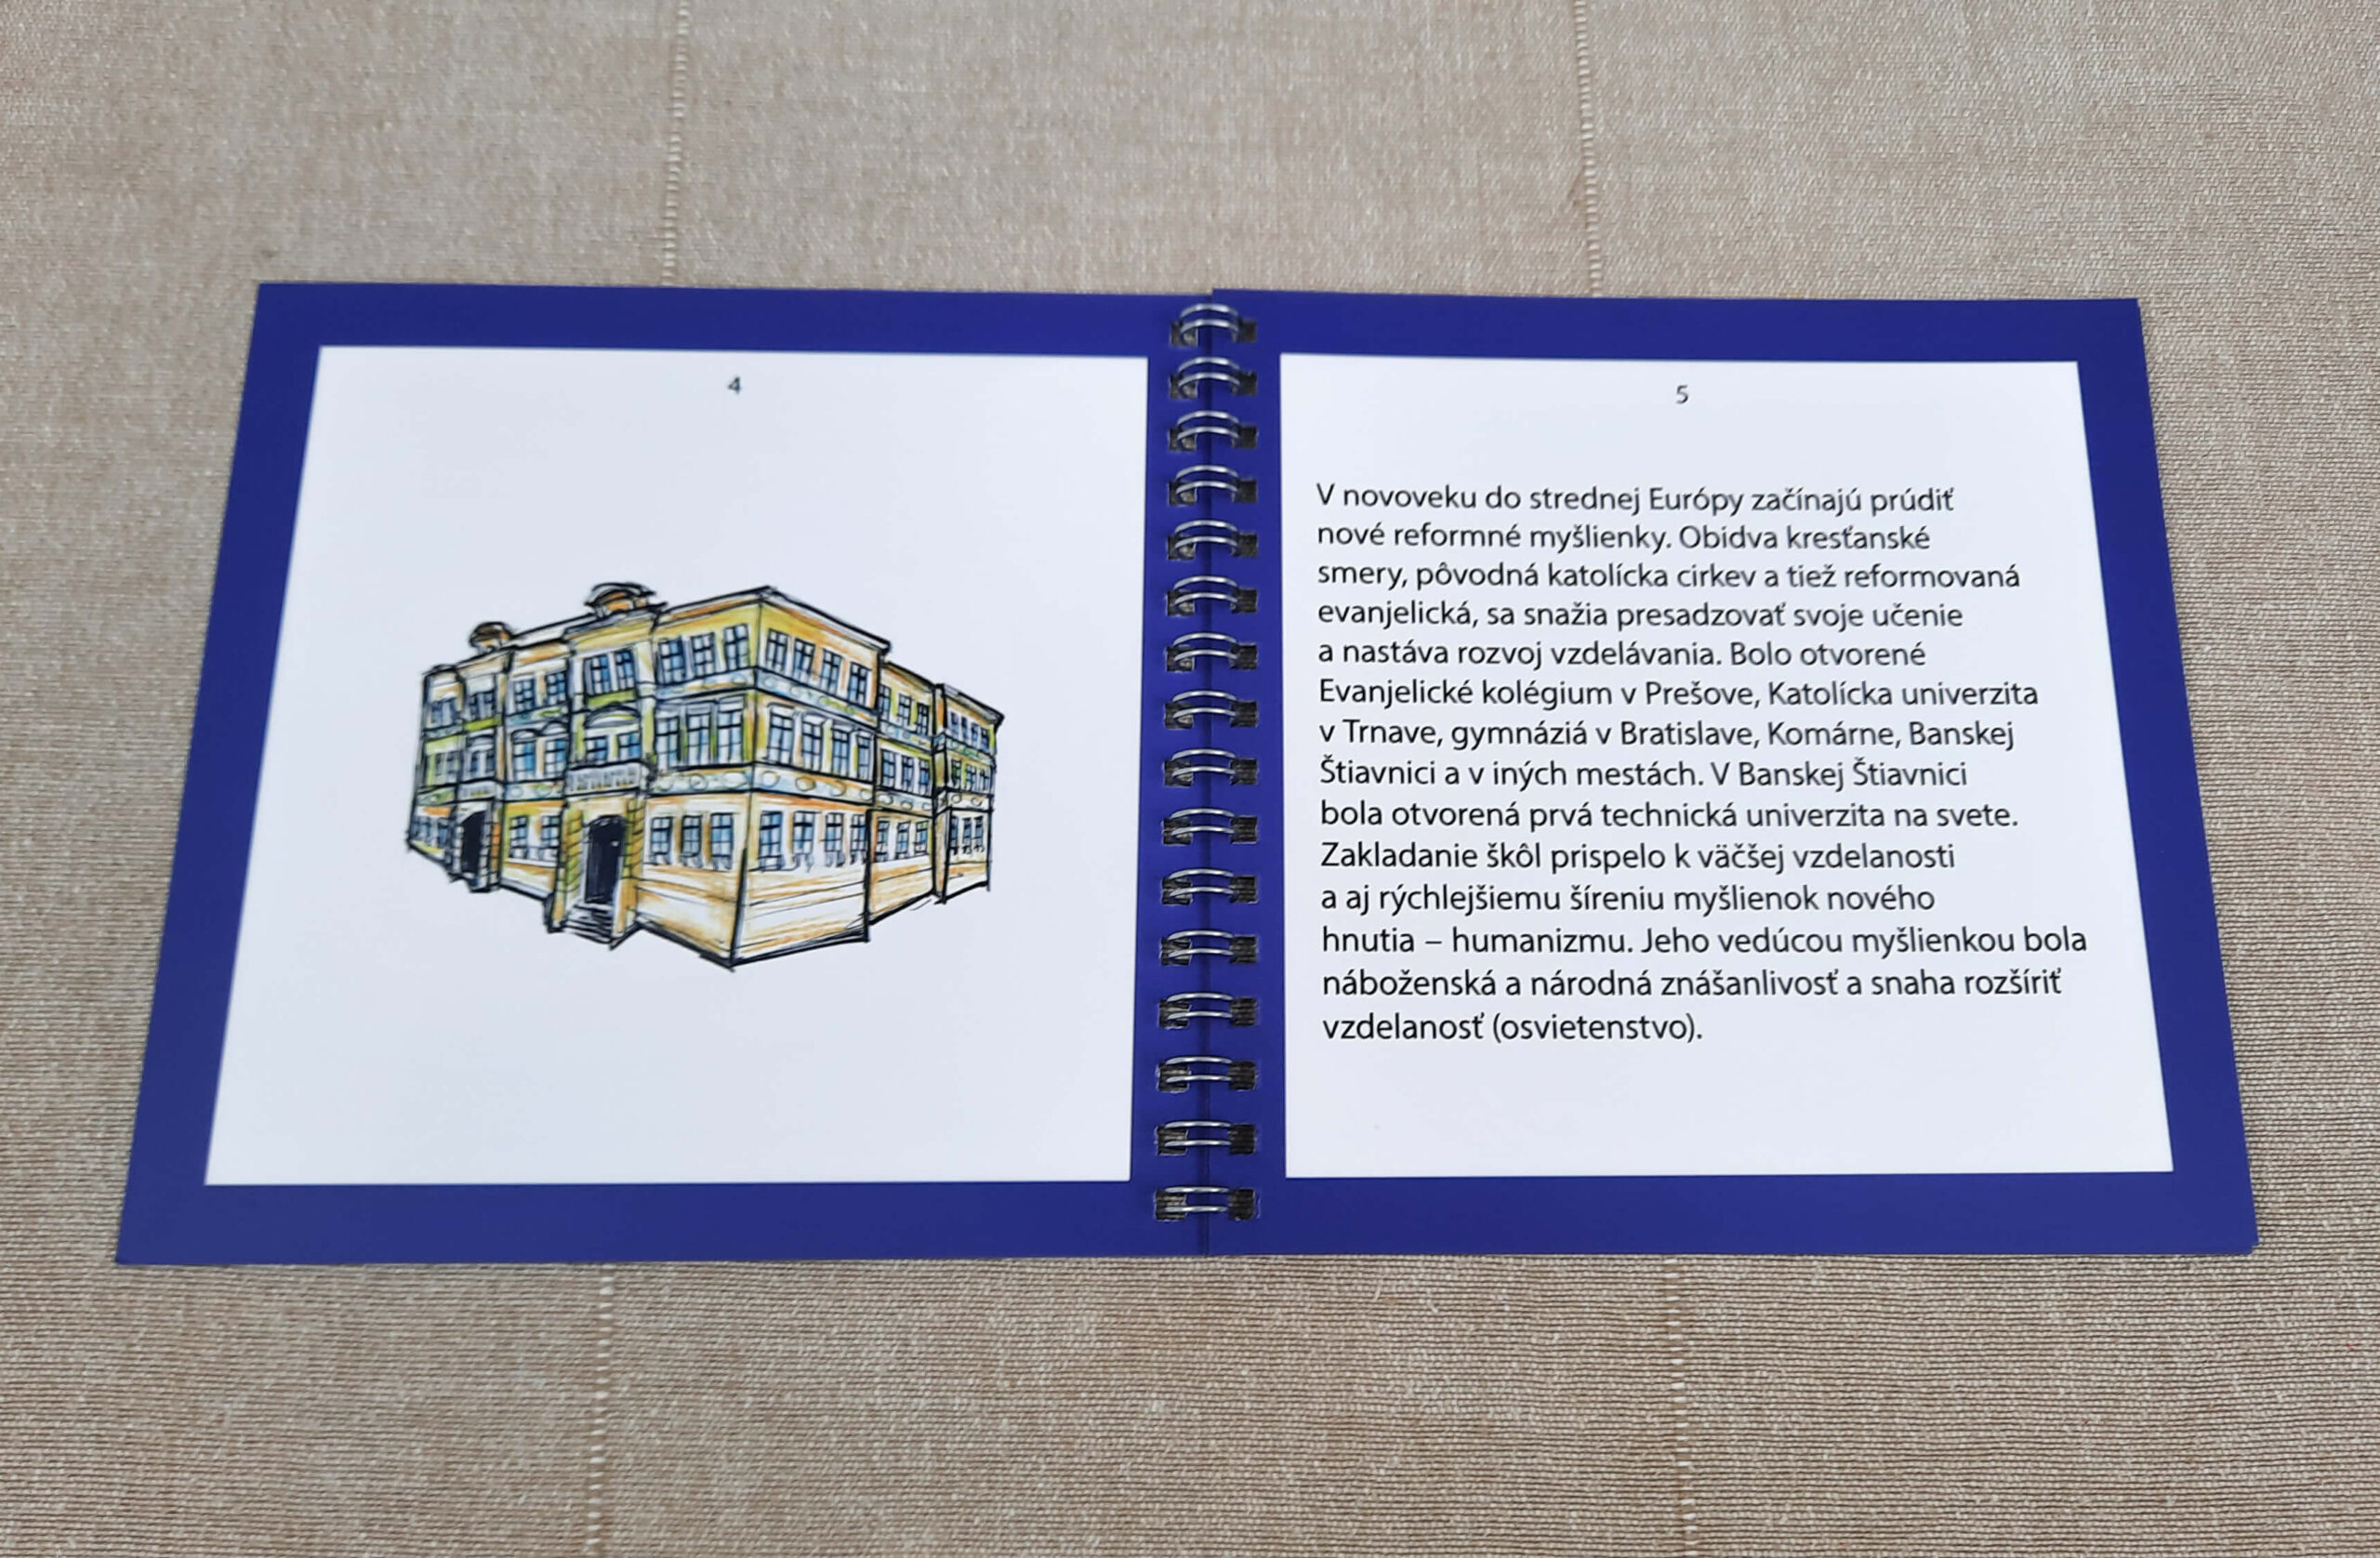 4
5
V novoveku do strednej Európy začínajú prúdiť
nové reformné myšlienky. Obidva kresťanské
smery, pôvodná katolícka cirkev a tiež reformovaná
evanjelická, sa snažia presadzovať svoje učenie
a nastáva rozvoj vzdelávania. Bolo otvorené
Evanjelické kolégium v Prešove, Katolícka univerzita
v Trnave, gymnáziá v Bratislave, Komárne, Banskej
Štiavnici a v iných mestách. V Banskej Štiavnici
bola otvorená prvá technická univerzita na svete.
Zakladanie škôl prispelo k väčšej vzdelanosti
a aj rýchlejšiemu šíreniu myšlienok nového
hnutia – humanizmu. Jeho vedúcou myšlienkou bola
náboženská a národná znášanlivosť a snaha rozšíriť
vzdelanosť (osvietenstvo).